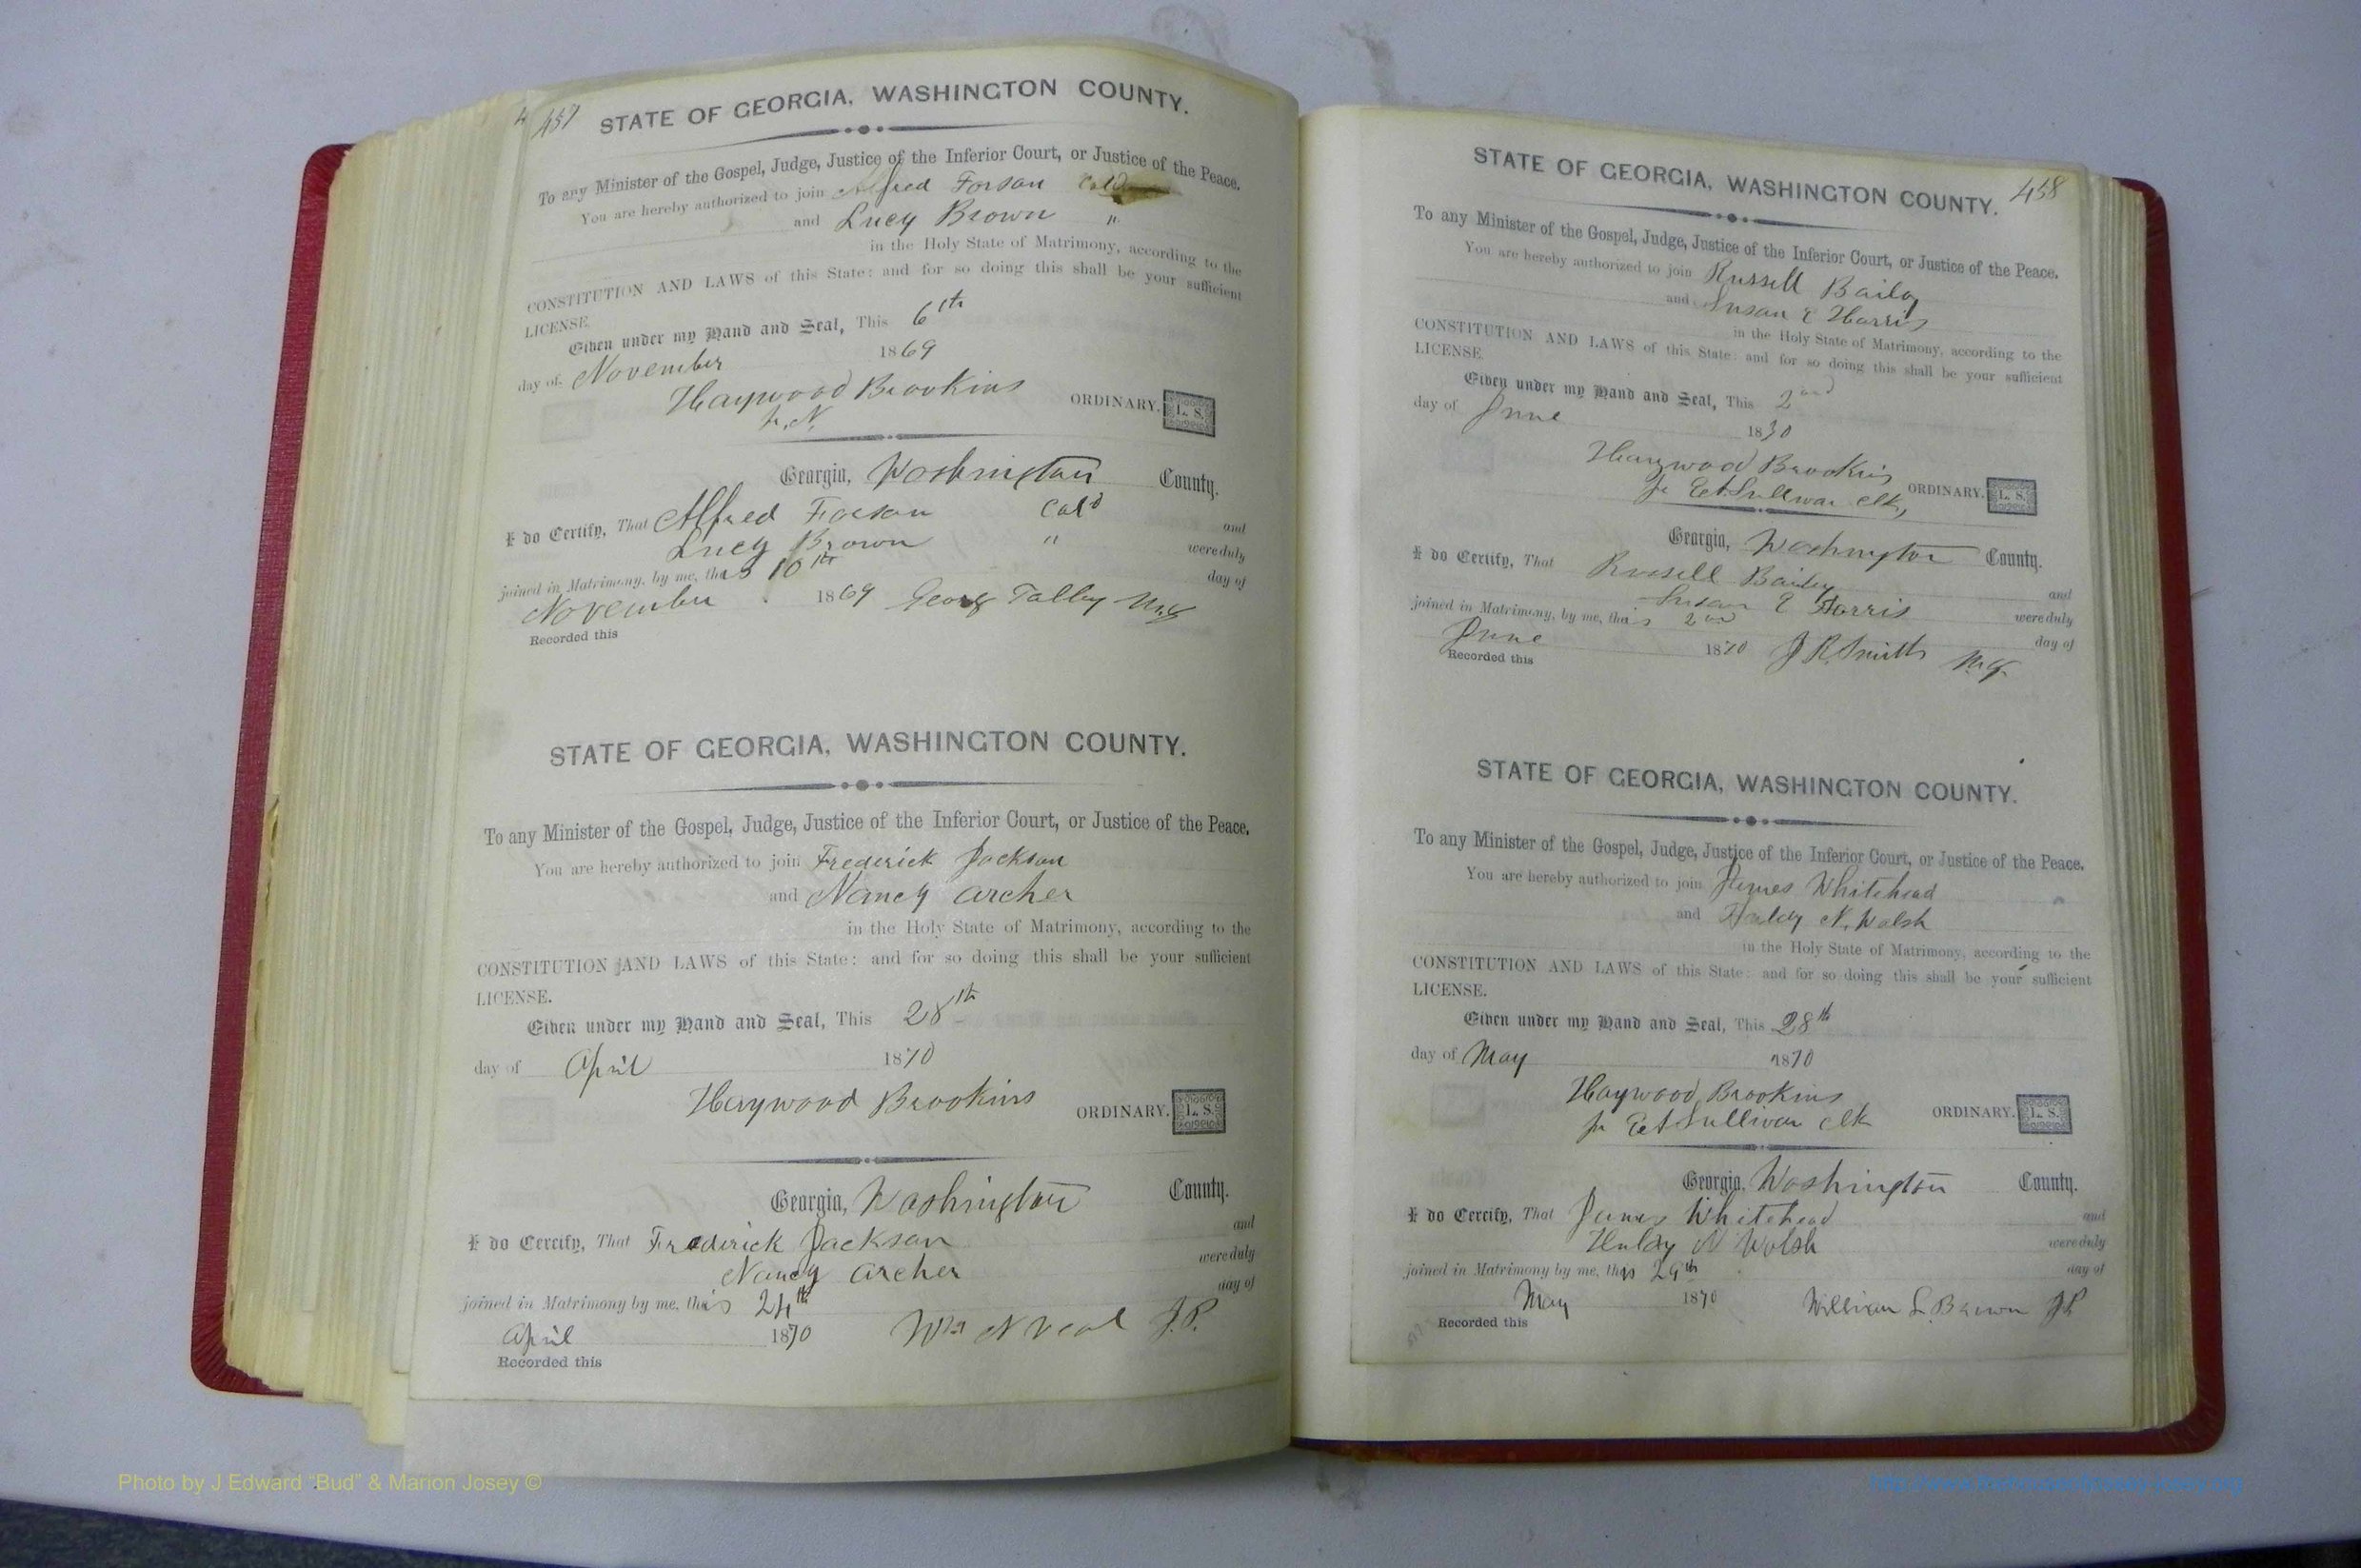 457 STATE OF GEORGIA, WASHINGTON COUNTY.
To any Minister of the Gospel, Judge, Justice of the Inferior Court, or Justice of the Peace.
You are hereby authorized to join Alfred Forson Cold
and Lucy Brown "
in the Holy State of Matrimony, according to the
CONSTITUTION AND LAWS of this State: and for so doing this shall be your sufficient
LICENSE.
Given under my Hand and Seal, This 6th
day of November 1869
Haywood Brookins ORDINARY. L. S.
Georgia, Washington County.
I do Certify, That Alfred Forson Cold and
Lucy Brown " were duly
joined in Matrimony, by me, this 10th day of
November 1869 George Talley M.G
Recorded this
STATE OF GEORGIA, WASHINGTON COUNTY.
To any Minister of the Gospel, Judge, Justice of the Inferior Court, or Justice of the Peace.
You are hereby authorized to join Frederick Jackson
and Nancy Archer
in the Holy State of Matrimony, according to the
CONSTITUTION AND LAWS of this State: and for so doing this shall be your sufficient
LICENSE.
Given under my Hand and Seal, This 28th
day of April 1870
Haywood Brookins ORDINARY. L. S.
Georgia, Washington County.
I do Certify, That Frederick Jackson and
Nancy Archer were duly
joined in Matrimony by me, this 24th day of
April 1870 Wm N Veal J.P.
Recorded this
STATE OF GEORGIA, WASHINGTON COUNTY. 458
To any Minister of the Gospel, Judge, Justice of the Inferior Court, or Justice of the Peace.
You are hereby authorized to join Russell Baily
and Susan E Harris
in the Holy State of Matrimony, according to the
CONSTITUTION AND LAWS of this State: and for so doing this shall be your sufficient
LICENSE.
Given under my Hand and Seal, This 2nd
day of June 1870
Haywood Brookins
Sullivan clk, ORDINARY. L. S.
Georgia, Washington County.
I do Certify, That Russell Bailey and
Susan E Harris were duly
joined in Matrimony, by me, this 2nd day of
June 1870 J R Smith M.G.
Recorded this
STATE OF GEORGIA, WASHINGTON COUNTY.
To any Minister of the Gospel, Judge, Justice of the Inferior Court, or Justice of the Peace.
You are hereby authorized to join James Whitehead
and Huldy N. Walsh
in the Holy State of Matrimony, according to the
CONSTITUTION AND LAWS of this State: and for so doing this shall be your sufficient
LICENSE.
Given under my Hand and Seal, This 28th
day of May 1870
Haywood Brookins
Sullivan clk ORDINARY. L. S.
Georgia, Washington County.
I do Certify, That James Whitehead and
Huldy N Walsh were duly
joined in Matrimony by me, this 29th day of
May 1870 William L. Brown J.P.
Recorded this
Photo by J Edward “Bud” & Marion Josey ©